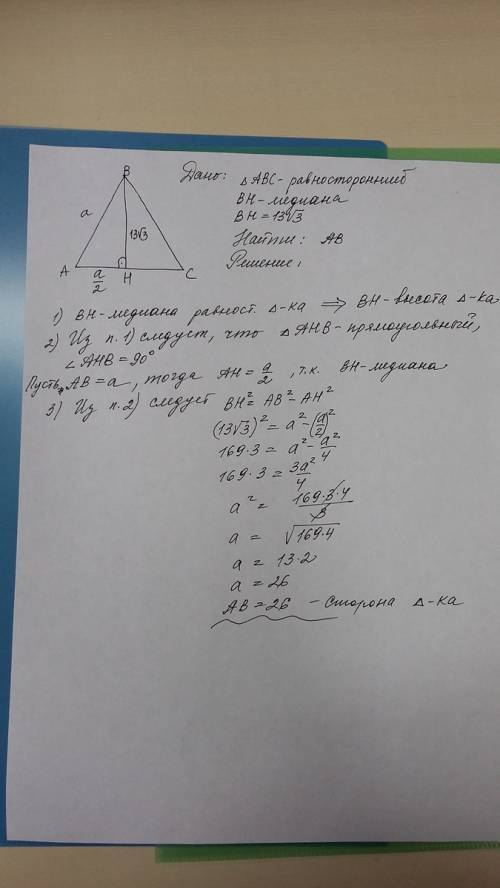 B
a
13√3
A
a/2
H
C
Дано: △ABC - равносторонний
BH - медиана
BH = 13√3
Найти: AB
Решение:
1) BH - медиана равност. △-ка ⇒ BH - высота △-ка
2) Из п. 1) следует, что △AHB - прямоугольный,
∠AHB = 90°
Пусть AB = a, тогда AH = a/2, т.к. BH - медиана
3) Из п. 2) следует BH² = AB² - AH²
(13√3)² = a² - (a/2)²
169·3 = a² - a²/4
169·3 = 3a²/4
a² = 169·3·4/3
a = √169·4
a = 13·2
a = 26
AB = 26 - сторона △-ка